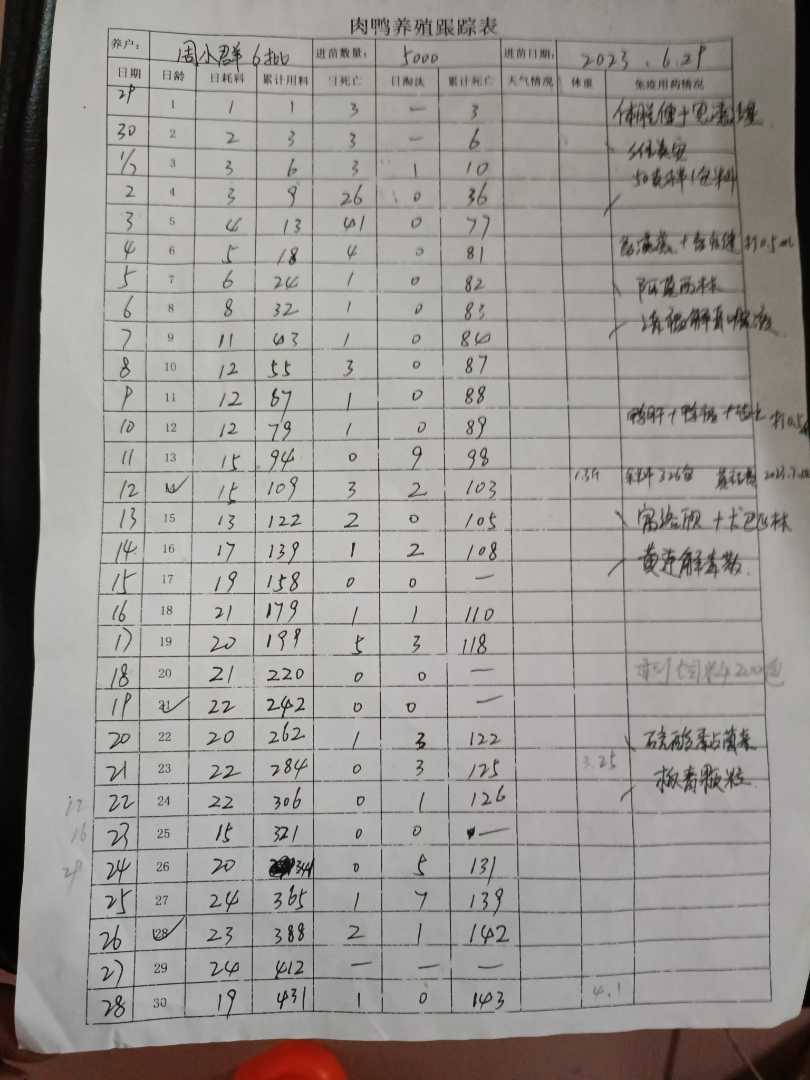 肉鸭养殖跟踪表
养户： 周小群 6批 进苗数量： 5000 进苗日期： 2023.6.29
日期 日龄 日耗料 累计用料 日死亡 日淘汰 累计死亡 天气情况 体重 免疫用药情况
29 1 1 1 3 — 3
30 2 2 3 3 — 6
1/7 3 3 6 3 1 10
2 4 3 9 26 0 36
3 5 4 13 41 0 77
4 6 5 18 4 0 81 打0.5ml
5 7 6 24 1 0 82 阿莫西林
6 8 8 32 1 0 83
7 9 11 43 1 0 84
8 10 12 55 3 0 87
9 11 12 67 1 0 88
10 12 12 79 1 0 89 鸭肝+
11 13 15 94 0 9 98
12 14 15 109 3 2 103
13 15 13 122 2 0 105
14 16 17 139 1 2 108 黄连解毒散
15 17 19 158 0 0 —
16 18 21 179 1 1 110
17 19 20 199 5 3 118
18 20 21 220 0 0 —
19 21 22 242 0 0 —
20 22 20 262 1 3 122
21 23 22 284 0 3 125 3.25 板青颗粒
12 22 24 22 306 0 1 126
16 23 25 15 321 0 0 —
29 24 26 20 341 0 5 131
25 27 24 365 1 7 139
26 28 23 388 2 1 142
27 29 24 412 — — —
28 30 19 431 1 0 143 4.1